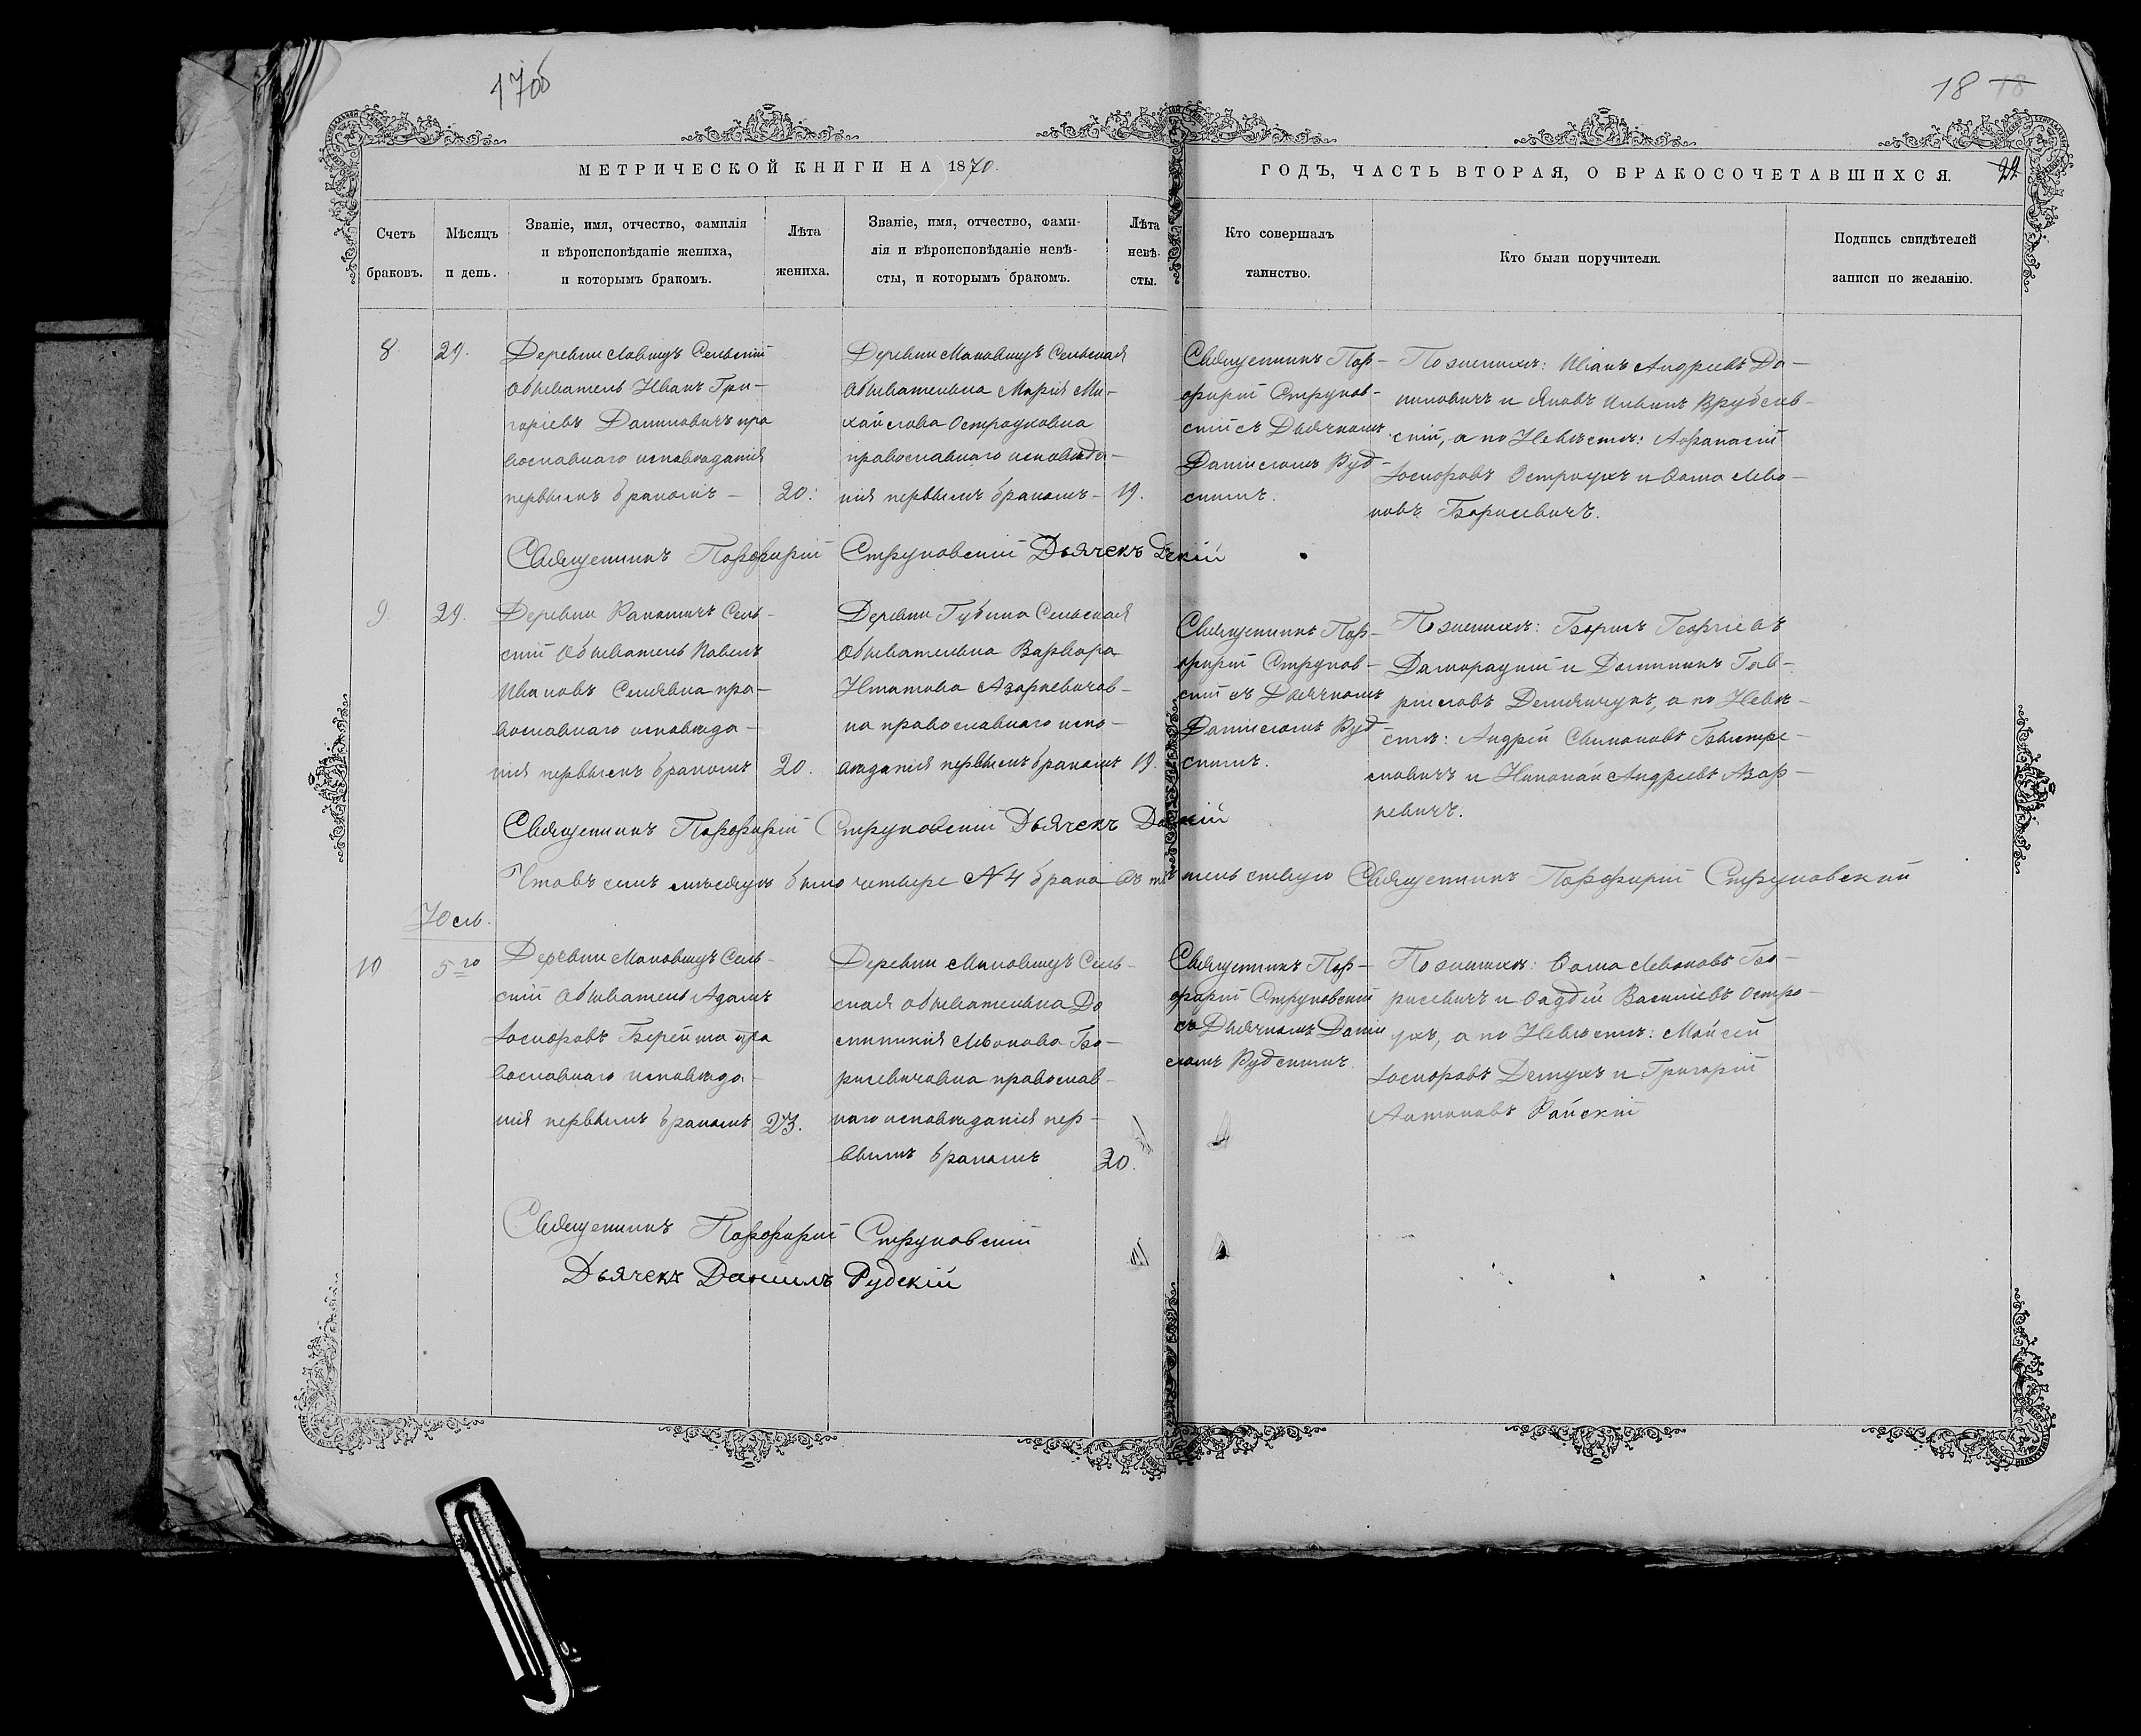 17об
18 18
МЕТРИЧЕСКОЙ КНИГИ НА 1870.
ГОДЪ, ЧАСТЬ ВТОРАЯ, О БРАКОСОЧЕТАВШИХСЯ.
Счетъ
браковъ.
Мѣсяцъ
и день.
Званіе, имя, отчество, фамилія
и вѣроисповѣданіе жениха,
и которымъ бракомъ.
Лѣта
жениха.
Званіе, имя, отчество, фами-
лія и вѣроисповѣданіе невѣ-
сты, и которымъ бракомъ.
Лѣта
невѣ-
сты.
Кто совершалъ
таинство.
Кто были поручители.
Подпись свидѣтелей
записи по желанію.
8.
29.
Деревни Сельскій
Обыватель Иванъ Гри-
горіевъ пра
вославнаго исповѣданія
первымъ бракомъ –
20.
Деревни Маковищъ Сельская
Обывательна Марія Ми-
хайлова Остроуховна
православнаго исповѣда-
нія первымъ бракомъ –
19.
Священникъ Пор-
фирій Струков-
скій съ Дьячкомъ
Даніиломъ Руд-
скимъ.
По женихѣ: Иванъ Андреевъ До-
и Яковъ Врублев-
скій, а по Невѣстѣ: Афанасій
Іосифовъ Остроухъ и Ѳома Лево-
новъ Борисевичъ.
Священникъ Порфирій Струковскій Дьячекъ
9.
29.
Деревни Сель-
скій Обыватель Павелъ
Ивановъ пра-
вославнаго исповѣда-
нія первымъ бракомъ
20.
Деревни Губина Сельская
Обывательна Варвара
Игнатова Азаркевичов-
на православнаго испо-
вѣданія первымъ бракомъ
19.
Священникъ Пор-
фирій Струков-
скій съ Дьячкомъ
Даніиломъ Руд-
скимъ.
По женихѣ: Борисъ Георгіевъ
Доморацкій и Гав-
риловъ Демянчукъ, а по Невѣ-
стѣ: Андрей Симоновъ
и Николай Андреевъ Азар-
кевичъ.
Священникъ Порфирій Струковскій Дьячекъ
Что въ семъ мѣсяцѣ было четыре № 4 брака въ томъ Священникъ Порфирій Струковскій
10
5го
Деревни Маковищъ Сель-
скій Обыватель Адамъ
Іосифовъ пра
вославнаго исповѣда-
нія первымъ бракомъ
23.
Деревни Маковищъ Сель-
ская обывательна До
Левонова Бо-
рисевичовна православ-
наго исповѣданія пер-
вымъ бракомъ
20.
Священникъ Пор-
фирій Струковскій
съ Дьячкомъ Дані
иломъ Рудскимъ.
По женихѣ: Ѳома Левоновъ Бо-
рисевичъ и Василіевъ Остро-
ухъ, а по Невѣстѣ: Моисей
Іосифовъ и Григорій
Антоновъ Райскій
Священникъ Порфирій Струковскій
Дьячекъ Даніилъ Рудскій